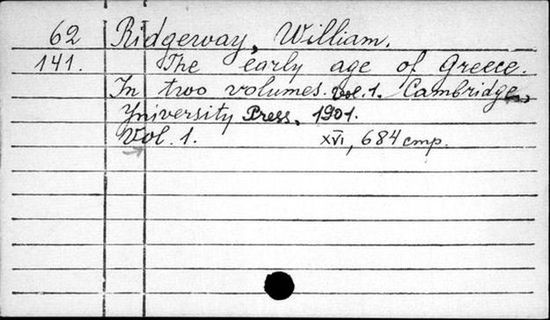 62 Ridgeway, William.
141. The early age of Greece.
In two volumes. vol. 1. Cambridge,
University Press, 1901.
Vol. 1. XVI, 684 стр.